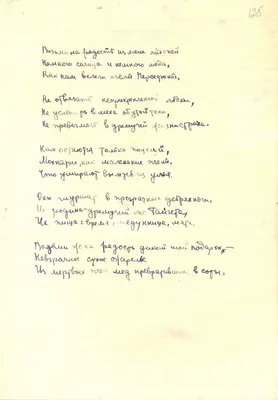 Возьми на радость из моих ладоней
Немного солнца и немного меда,
Как нам велели пчелы Персефоны.
Не отвязать неприкрепленной лодки,
Не услыхать в меха обутой тени,
Не превозмочь в дремучей жизни страха.
Нам остаются только поцелуи,
Мохнатые, как маленькие пчелы,
Что умирают, вылетев из улья.
Они шуршат в прозрачных дебрях ночи,
Их родина дремучий лес Тайгета,
Их пища: время, медуница, мята.
Возьми ж на радость дикий мой подарок,—
Невзрачное сухое ожерелье
Из мертвых пчел мед превративших в